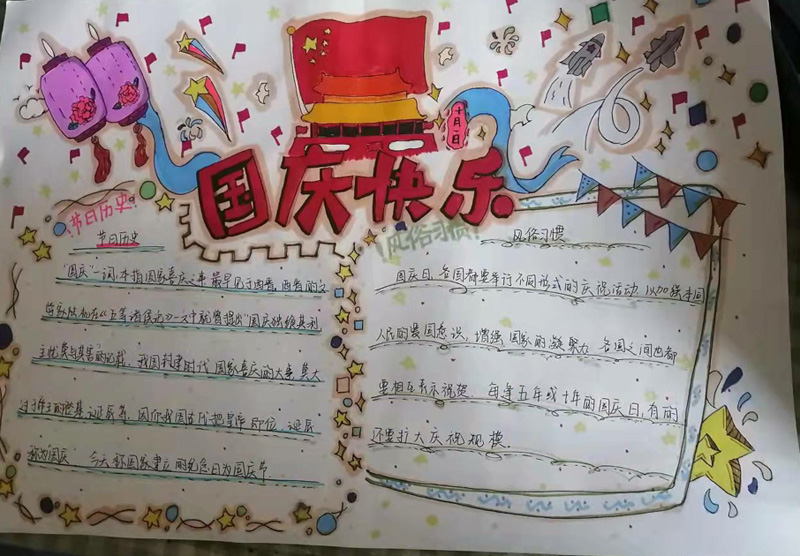 十月一日
国庆快乐
节日历史
节日历史
"国庆"一词,本指国家喜庆之事、最早见于西晋。西晋的文
学家陆机在《五等诸侯论》一文中就曾提出"国庆独飨其利
主忧莫与其害"的记载、我国封建时代、国家喜庆的大事、莫大
过于帝王的登基、诞辰等。因而我国古代把皇帝即位、诞辰
称为"国庆"。今天称国家建立的纪念日为国庆节
风俗习惯
风俗习惯
国庆日、各国都要举行不同形式的庆祝活动、以加强本国
人民的爱国意识,增强国家的凝聚力。各国之间也都
要相互表示祝贺。每逢五年或十年的国庆日,有的
还要扩大庆祝规模.